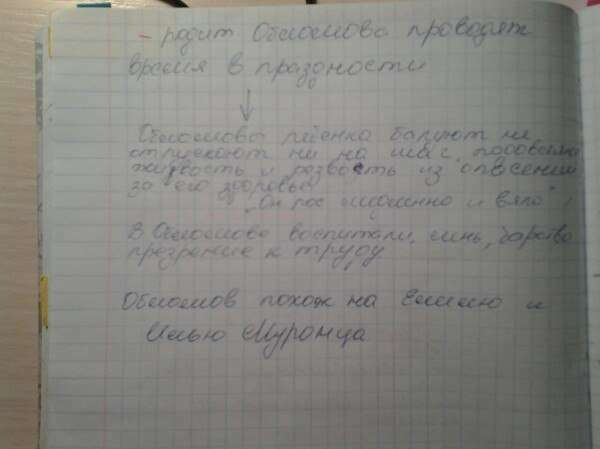 - родит Обломова проводят
время в праздности
Обломова ребенка балуют не
отпускают ни на шаг, подавляя
живость и резвость из опасений
за его здоровье
"Он рос изнеженно и вяло"
В Обломове воспитали лень, барство
презрение к труду
Обломов похож на Емелю и
Илью Муромца